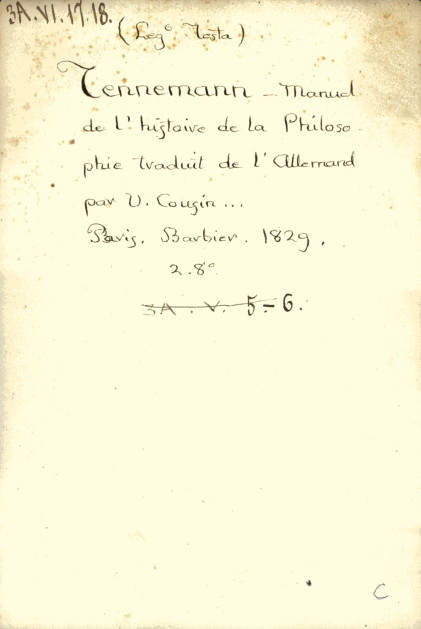 3A.VI.17.18.
(Leg.º Tosta)
Tennemann - Manuel
de l'histoire de la Philoso-
phie traduit de l'Allemand
par V. Cousin...
Paris. Barbier. 1829.
2.8º
3A.V. 5-6.
C